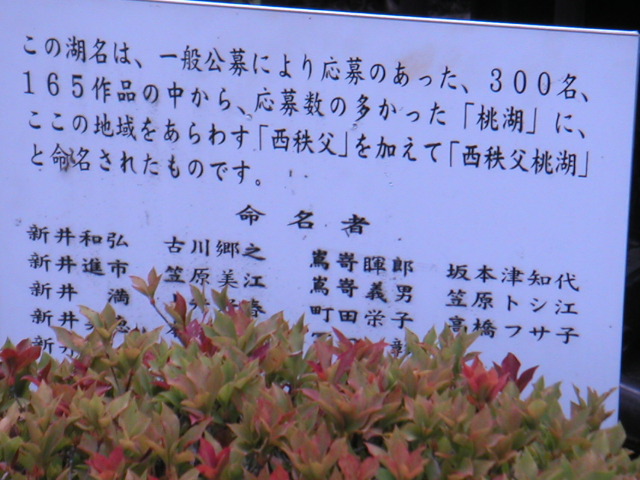 この湖名は、一般公募により応募のあった、300名、
165作品の中から、応募数の多かった「桃湖」に、
ここの地域をあらわす「西秩父」を加えて「西秩父桃湖」
と命名されたものです。
命名者
新井和弘 古川郷之 嶌嵜暉郎 坂本津知代
新井進市 笠原美江 嶌嵜義男 笠原トシ江
新井満 春 町田栄子 高橋フサ子
新井
新井